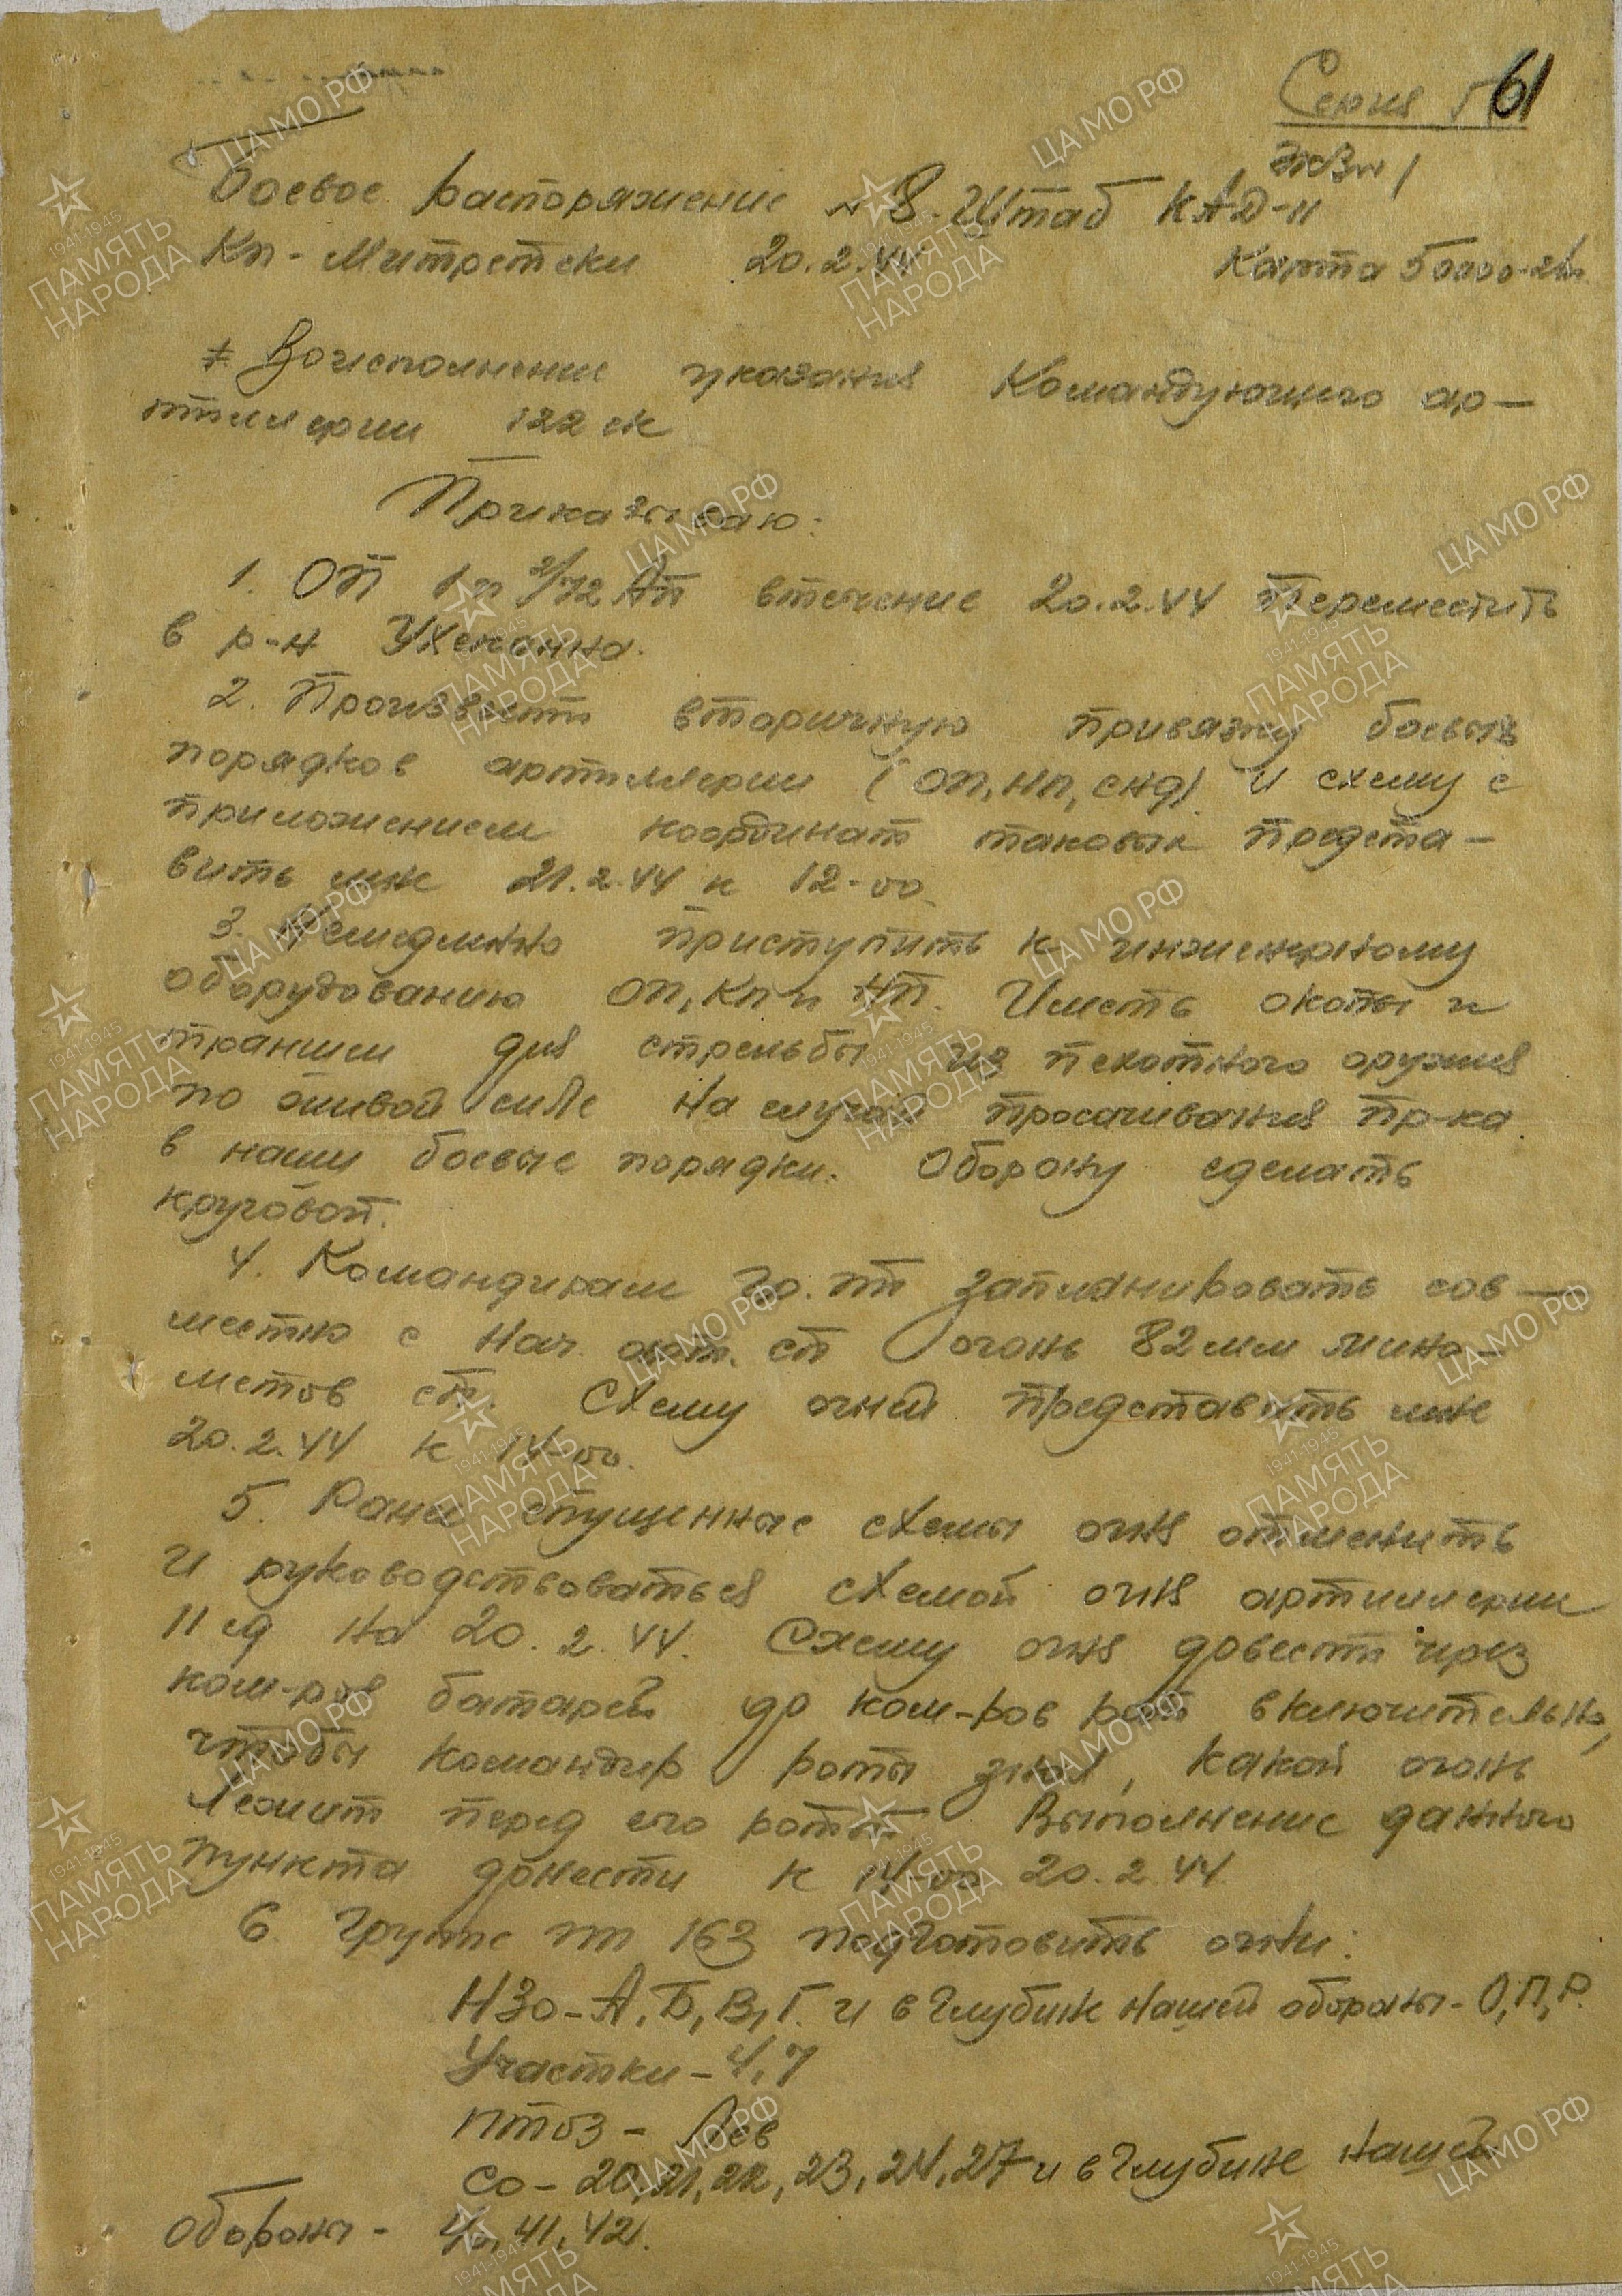 Серия 61
Экз № 1
Боевое распоряжение № 8. Штаб КАД-11
Кп - Митретски 20.2.44 Карта 50000-
Во исполнение указания Командующего ар-
тиллерии 122 ск
Приказываю:
1. ОП 2/72 Ап втечение 20.2.44 переместить
в р-н Ухеканна.
2. Произвести вторичную привязку боевых
порядков артиллерии (ОП, НП, СНД) и схему с
приложением координат таковых предста-
вить мне 21.2.44 к 12-00.
3. Немедленно приступить к инженерному
оборудованию ОП, Кп и НП. Иметь окопы и
траншеи для стрельбы из пехотного оружия
по живой силе на случай просачивания пр-ка
в наши боевые порядки. Оборону сделать
круговой.
4. Командирам гр. пп запланировать сов-
местно с Нач. арт. сп огонь 82 мм мино-
метов сп. Схему огней представить мне
20.2.44 к 14-00.
5. Ранее спущенные схемы огня отменить
и руководствоваться схемой огня артиллерии
11 сд на 20.2.44. Схему огня довести через
ком-ров батарей до ком-ров рот включительно,
чтобы командир роты знал, какой огонь
лежит перед его ротой. Выполнение данного
пункта донести к 14-00 20.2.44
6 Группе пп 163 подготовить огни:
НЗО - А, Б, В, Г. и в глубине нашей обороны - О, П, Р.
Участки - 4, 7
ПТОЗ - Лев
СО - 20, 21, 22, 23, 24, 27 и в глубине нашей
обороны - 40, 41, 42.
ЦА МО РФ
1941-1945
ПАМЯТЬ
НАРОДА